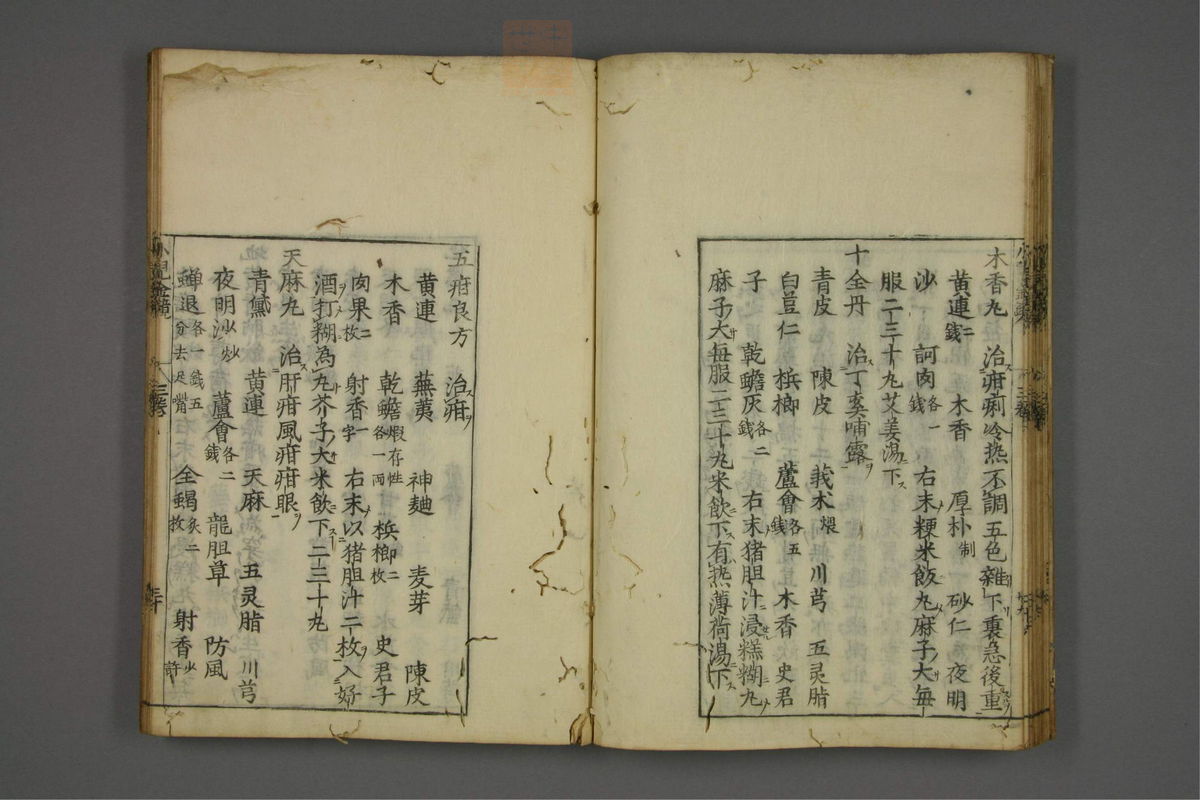 木香丸 治疳痢冷热不調五色雜下裏急後重
黄連二錢 木香 厚朴制 砂仁 夜明
沙 訶肉各一錢 右末粳米飯丸麻子大每
服二三十丸艾姜湯下
十全丹 治丁奚哺露
青皮 陳皮 莪朮煨 川芎 五灵脂
白荳仁 梹榔 蘆會各五錢 木香 史君
子 乾蟾灰各二錢 右末猪胆汁浸糕糊丸
麻子大每服二三十丸米飲下有热薄荷湯下
五疳良方 治疳
黄連 蕪荑 神麯 麦芽 陳皮
木香 乾蟾煆存性各一兩 梹榔二枚 史君子
肉果二枚 射香一字 右末以猪胆汁二枚入好
酒打糊為丸芥子大米飲下二三十丸
天麻丸 治肝疳風疳疳眼
青黛 黄連 天麻 五灵脂 川芎
夜明沙炒 蘆會各二錢 龍胆草 防風
蟬退各一錢五分去足嘴 全蝎炙二枚 射香少許